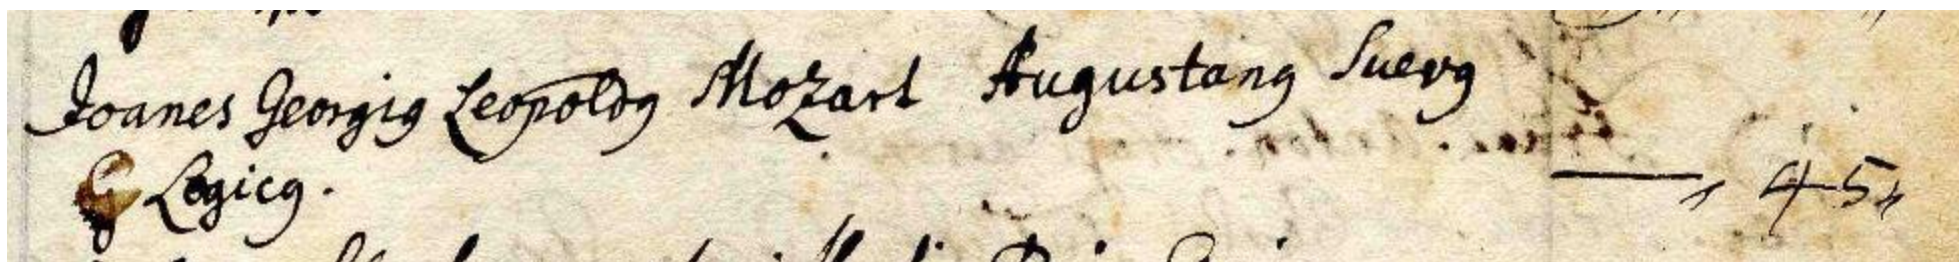 Joanes Georgiꝰ Leopoldꝰ Mozart Augustanꝰ Suevꝰ
Logicꝰ. — 45